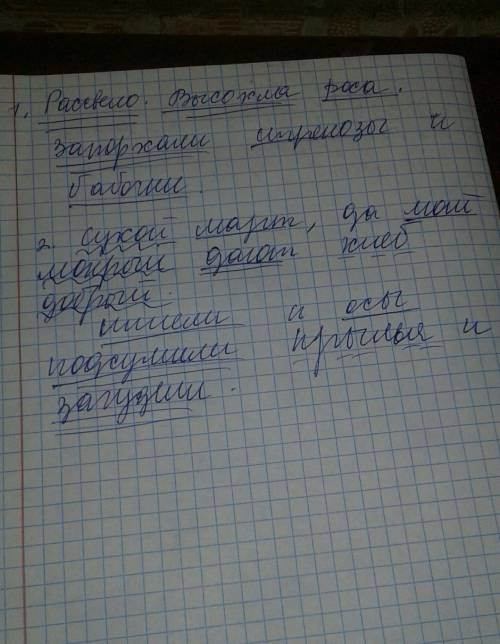 1. Рассвело. Высохла роса.
Запорхали стрекозы и
бабочки.
2. Сухой март, да май
мокрый дают хлеб
добрый.
и осы
подсушили крылья и
загудели.